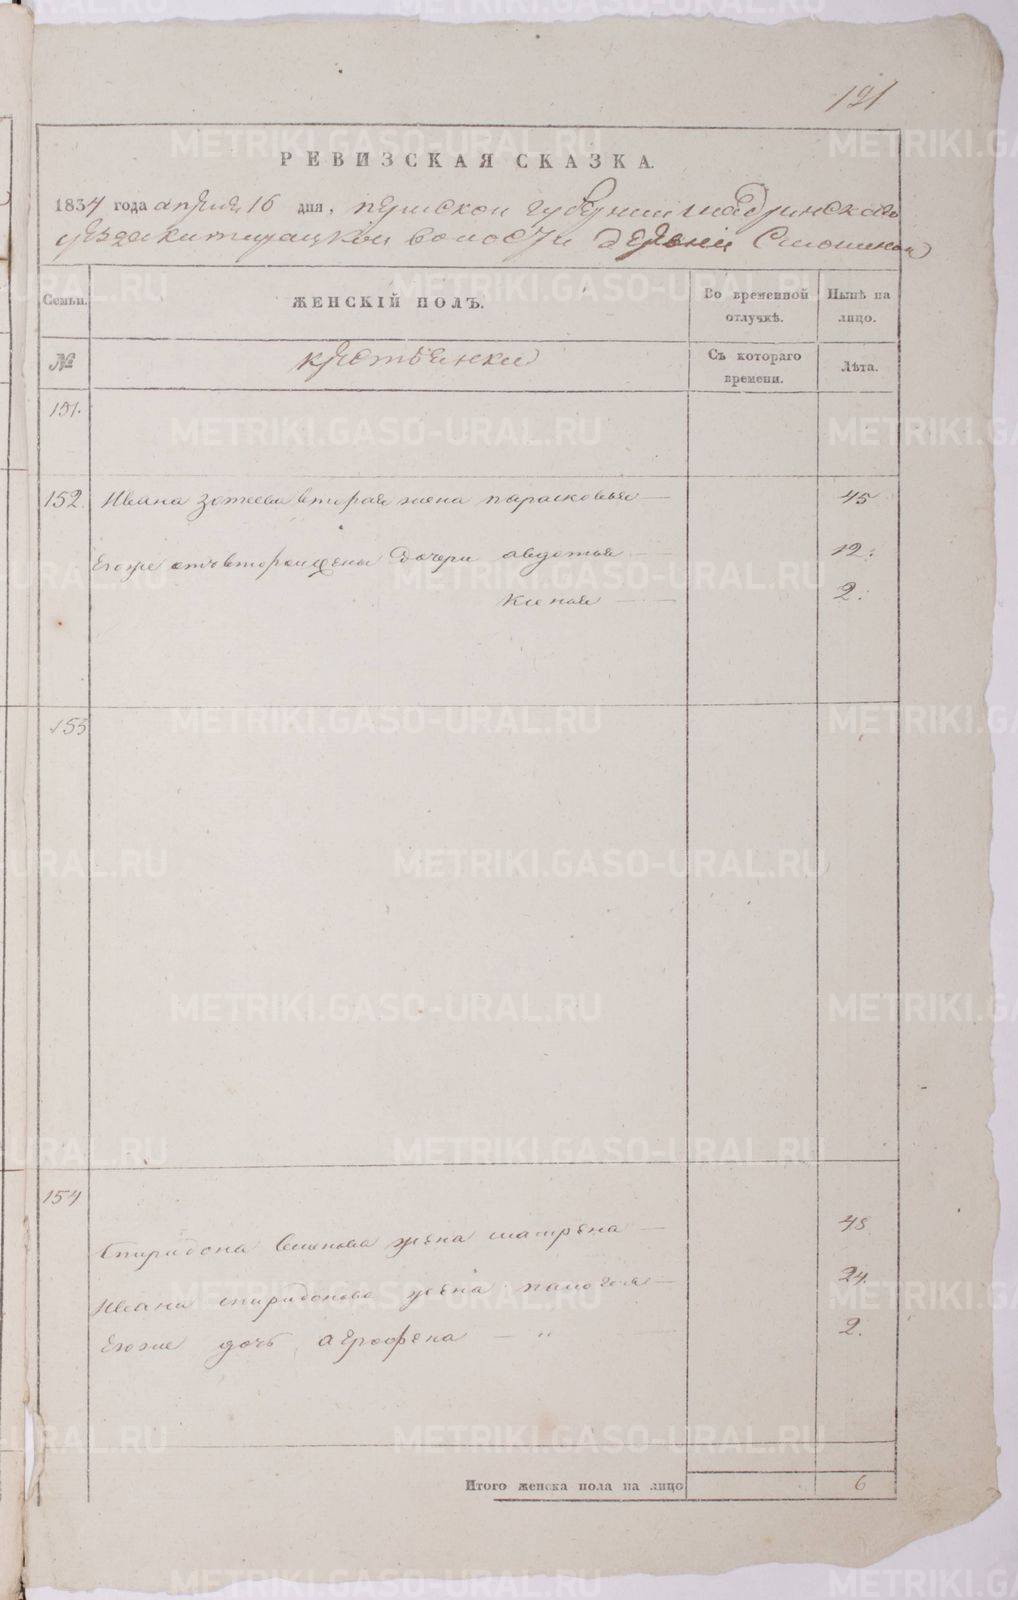 121
РЕВИЗСКАЯ СКАЗКА.
1834 года апреля 16 дня, пермской губернии шадринскаго
уезда волости деревни
Семьи. ЖЕНСКІЙ ПОЛЪ. Во временной отлучкѣ. Нынѣ на лицо.
№ крестьянки Съ котораго времени. Лѣта.
151.
152. Ивана вторая жена парасковья 45
Егоже отъ второй жены дочери авдотья 12:
2:
153
154
Спиридона жена матрена 48
Ивана спиридонова жена 24.
Егоже дочь агрофена — " 2.
Итого женска пола на лицо 6
METRIKI.GASO-URAL.RU